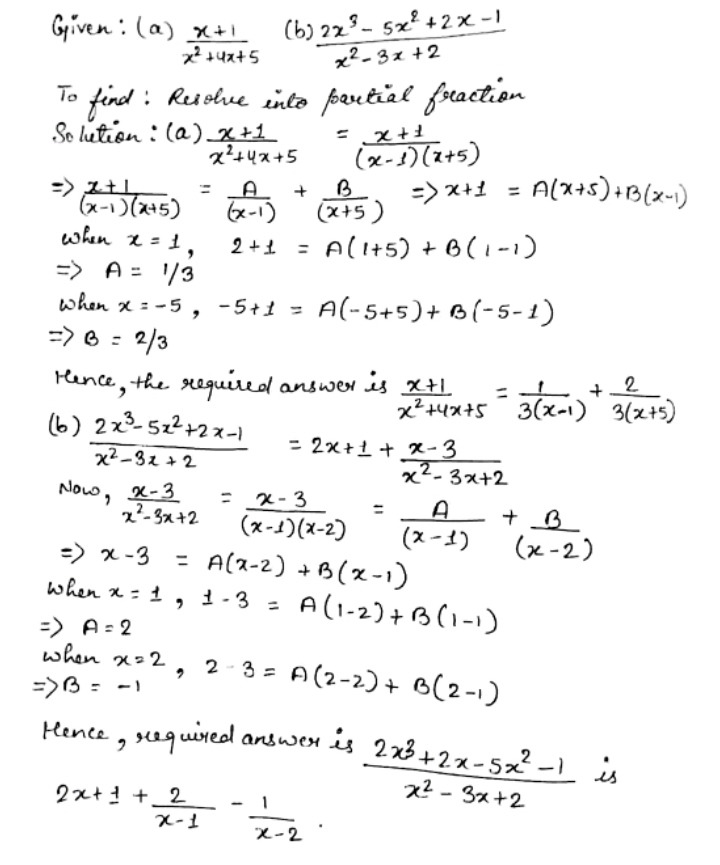 Given : (a) x+1 / x²+4x+5 (b) 2x³ - 5x² + 2x - 1 / x² - 3x + 2
To find : Resolve into partial fraction
Solution : (a) x+1 / x²+4x+5 = x+1 / (x-1)(x+5)
=> x+1 / (x-1)(x+5) = A / (x-1) + B / (x+5) => x+1 = A(x+5)+B(x-1)
when x = 1, 2+1 = A(1+5) + B(1-1)
=> A = 1/3
when x = -5, -5+1 = A(-5+5) + B(-5-1)
=> B = 2/3
Hence, the required answer is x+1 / x²+4x+5 = 1 / 3(x-1) + 2 / 3(x+5)
(b) 2x³-5x²+2x-1 / x²-3x+2 = 2x+1 + x-3 / x²-3x+2
Now, x-3 / x²-3x+2 = x-3 / (x-1)(x-2) = A / (x-1) + B / (x-2)
=> x-3 = A(x-2) + B(x-1)
when x = 1, 1-3 = A(1-2) + B(1-1)
=> A = 2
when x=2, 2-3 = A(2-2) + B(2-1)
=> B = -1
Hence, required answer is 2x³+2x-5x²-1 / x²-3x+2 is
2x+1 + 2 / x-1 - 1 / x-2 .